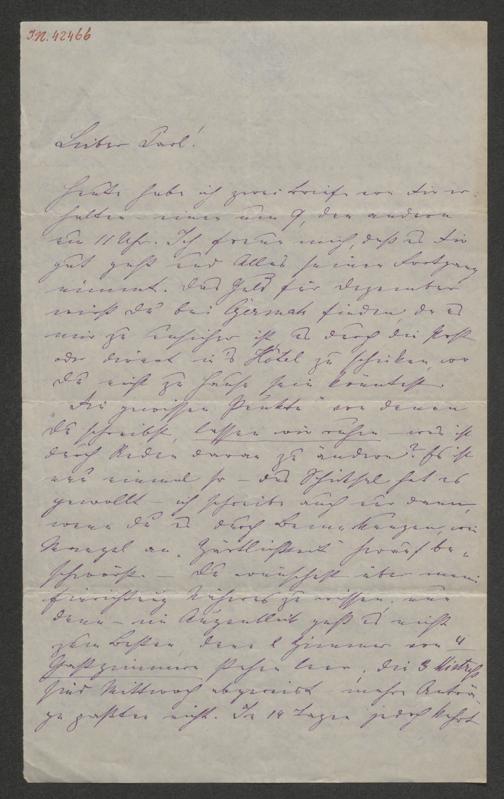 I.N. 42466
Lieber Carl!
Heute habe ich zwei Briefe von Dir er-
halten einen um 9, den andern
um 11 Uhr. Ich freue mich, daß es Dir
gut geht und Alles seinen Fortgang
nimmt. Das Geld für Dezember
wirst Du bei finden, da es
mir zu unsicher ist, es durch die Post
oder direct in's Hôtel zu schicken, wo
Du nicht zu Hause sein könntest.
"Die gewissen Punkte" von denen
Du schreibst, lassen wir ruhen – was ist
durch Reden daran zu ändern? Es ist
nun einmal so – das Schicksal hat es
gewollt – ich schreibe auch nur dann,
wenn Du es durch Bemerkungen, wie
Mangel an "Zärtlichkeit" herauf be-
schwörst. – Du wünschest über meine
Einrichtung Näheres zu wissen, nun
denn – im Augenblick geht es nicht
zum Besten, denn 2 Zimmer von 4
Gastzimmern stehen leer, die 3
sind Mittwoch abgereist, mehre Anträ-
ge paßten nicht. In 14 Tagen jedoch kehrt